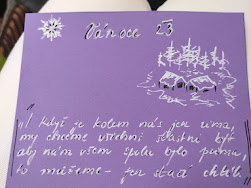 Vánoce 23
„I když je kolem nás jen zima,
my chceme všichni šťastni být
aby nám všem spolu bylo prima
to můžeme – jen stačí chtít."